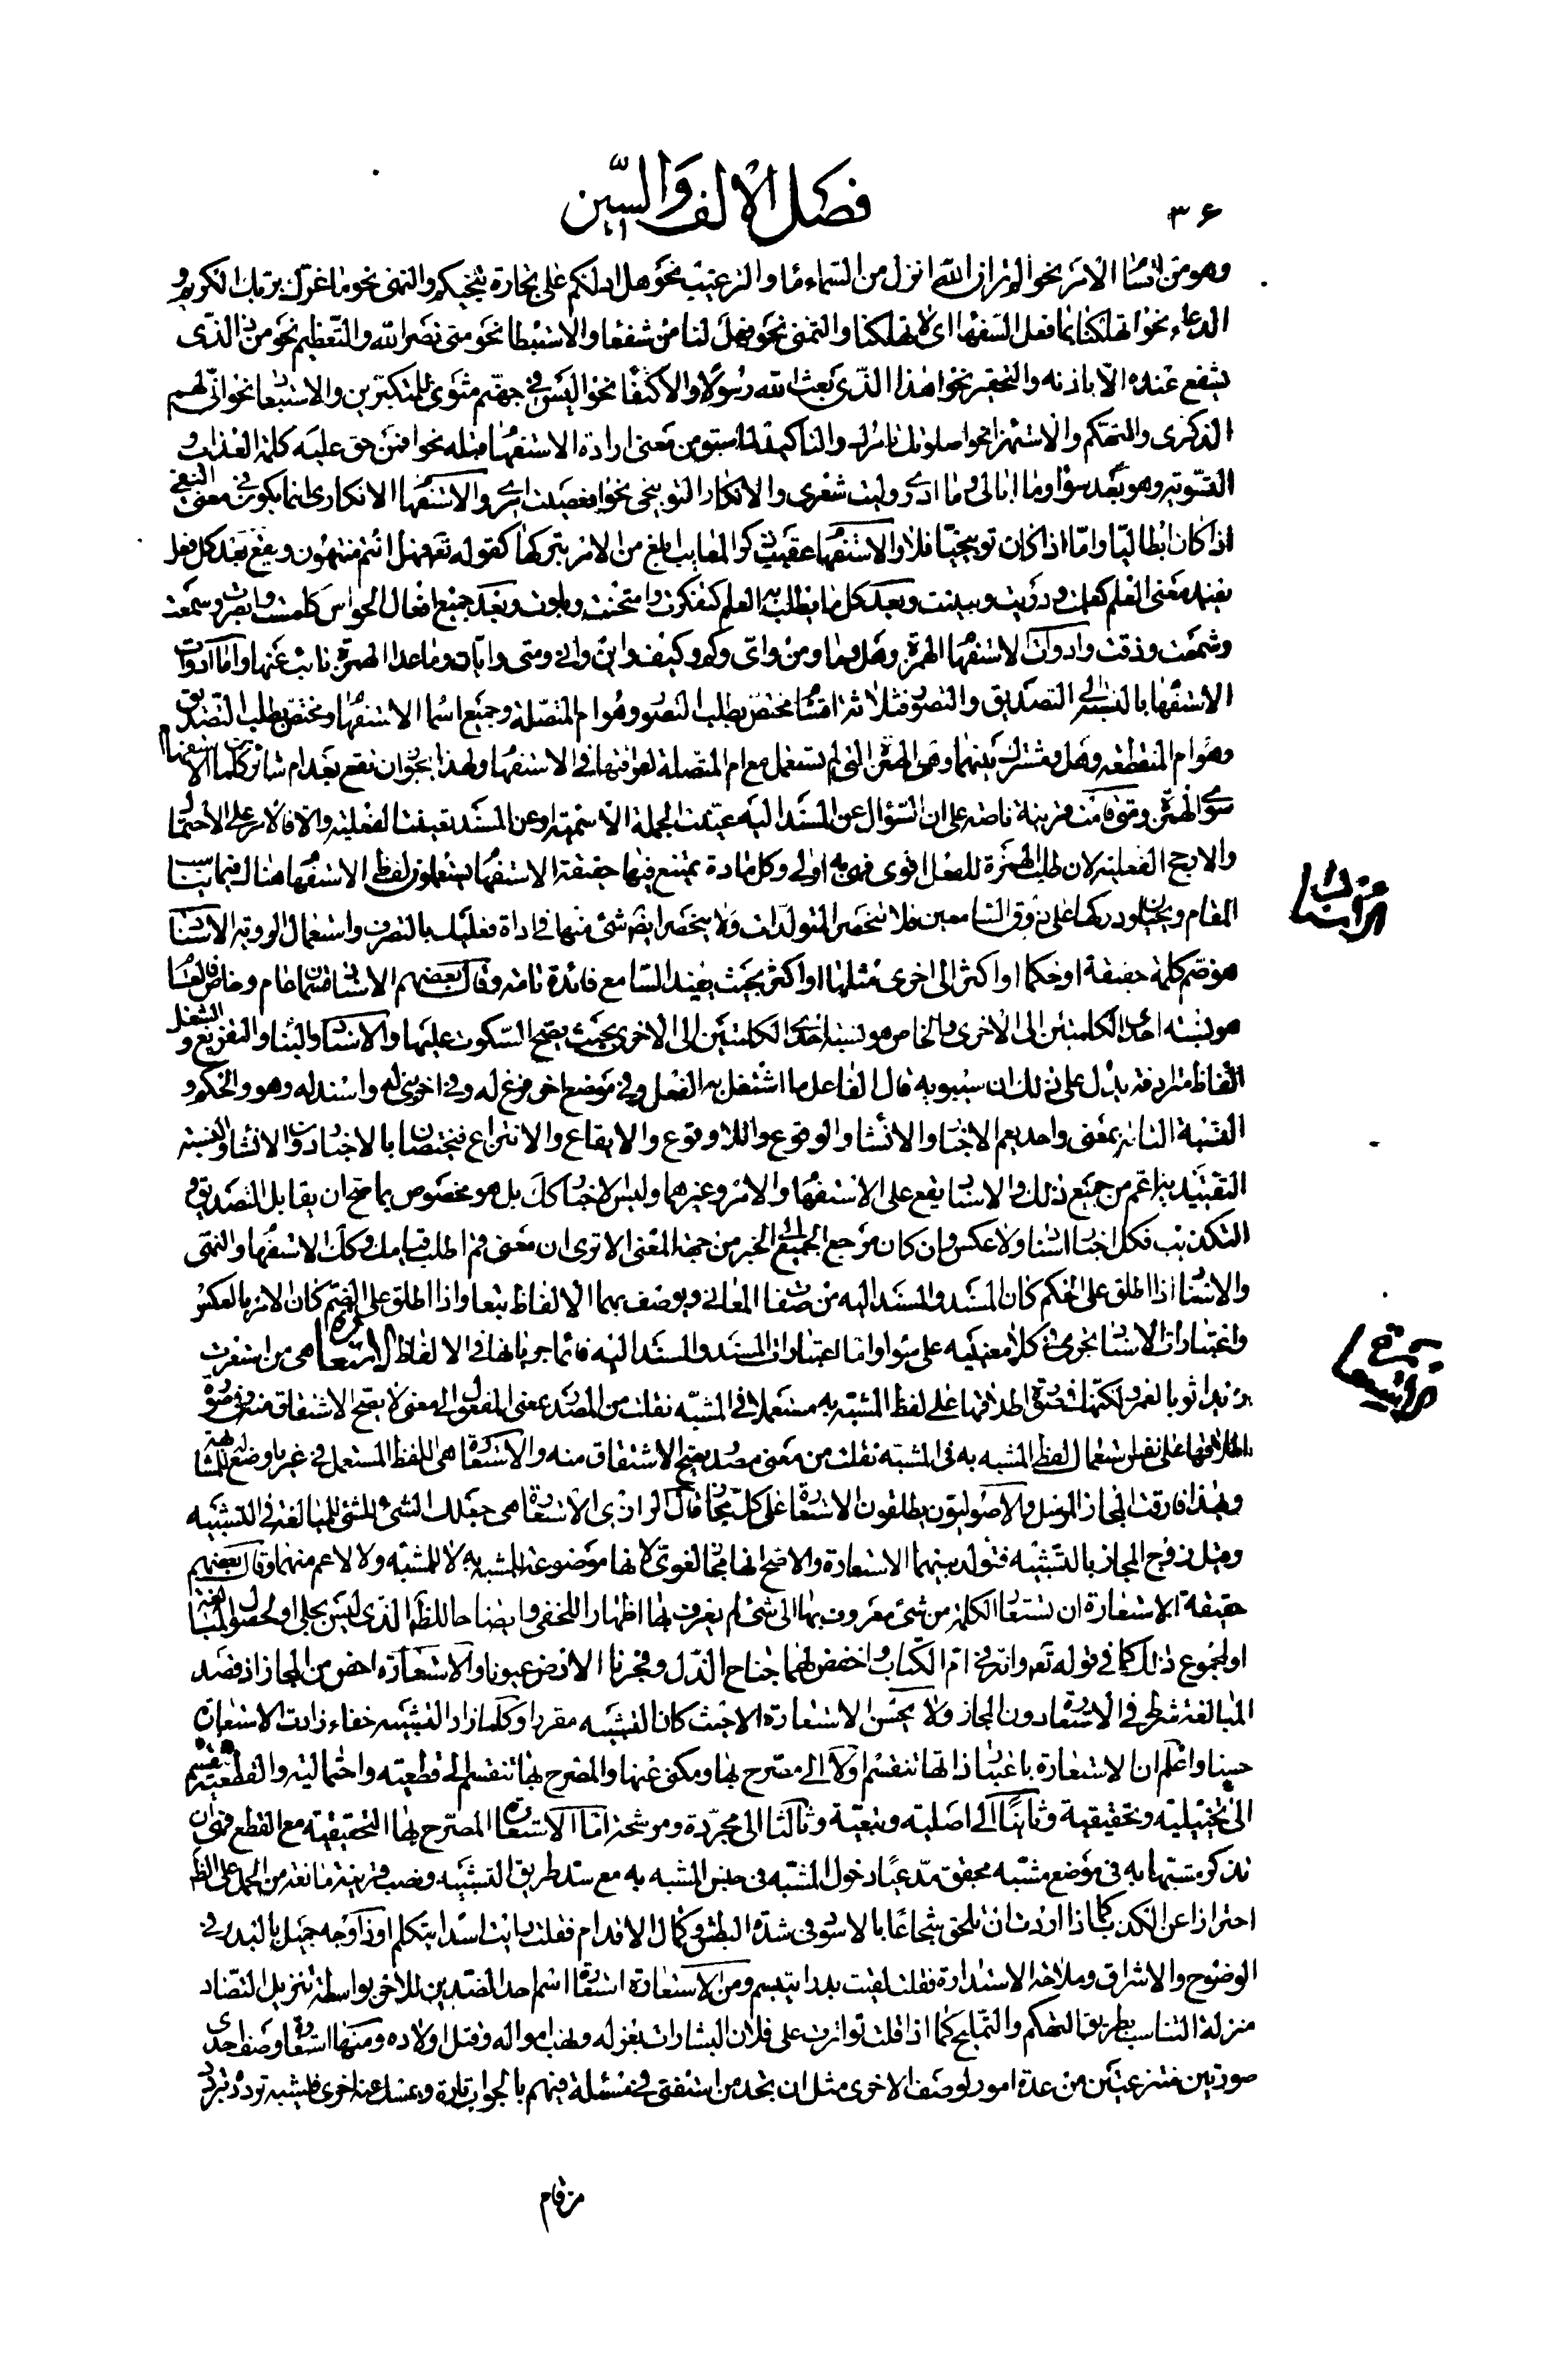 ٣٤
فصل الالف والسين
وهو من اقسام الامر نحو الم تر ان الله انزل من السماء ماء والترغيب نحو هل ادلكم على تجارة تنجيكم والتمنى نحو ما غرك بربك الكريم و
الدعاء نحو اتهلكنا بما فعل السفهاء اى لا تهلكنا والتمنى نحو فهل لنا من شفعاء والاستبطاء نحو متى نصر الله والتعظيم نحو من ذا الذى
يشفع عنده الا باذنه والتحقير نحو اهذا الذى بعث الله رسولا والاكتفاء نحو اليس فى جهنم مثوى للمتكبرين والاستبعاد نحو انى لهم
الذكرى والتهكم والاستهزاء نحو اصلوتك تامرك والتاكيد لما سبق من معنى اداة الاستفهام قبله نحو افمن حق عليه كلمة العذاب و
التسوية وهو بعد سواء وما ابالى وما ادرى وليت شعرى والانكار التوبيخى نحو افعصيت امرى والاستفهام الانكارى انما يكون فى معنى النفى
اذا كان ابطاليا واما اذا كان توبيخيا فلا والاستفهام عقيب ذكر المعايب ابلغ من الامر بتركها كقوله تعه فهل انتم منتهون ويقع بعد كل فعل
يفيد معنى العلم كعلمت ودريت وتبينت وبعد كل ما يطلب به العلم كتفكرت وامتحنت وبلوت وبعد جميع افعال الحواس كلمست وابصرت وسمعت
وشممت وذقت وادوات الاستفهام الهمزة وهل وما ومن واى وكم وكيف واين وانى ومتى وايان وما عدا الهمزة نائب عنها واما ادوات
الاستفهام بالنسبة الى التصديق والتصور فثلاثة اقسام مختص بطلب التصور وهو ام المتصلة وجميع اسماء الاستفهام ومختص بطلب التصديق
وهو ام المنقطعة وهل ومشترك بينهما وهى الهمزة التى لم تستعمل مع ام المتصلة لعراقتها فى الاستفهام ولهذا يجوز ان تقع بعد ام سائر كلمات الاستفهام
سوى الهمزة ومتى قامت قرينة ناصة على ان السؤال عن المسند اليه تعينت الجملة الاسمية او عن المسند تعينت الفعلية والا فالامر على الاحتمال
والارجح الفعلية لان طلب الهمزة للفعل اقوى فهى به اولى وكل مادة يمتنع فيها حقيقة الاستفهام يستعملون لفظ الاستفهام هناك فيما يناسب
المقام ويحيلون دركها على ذوق السامعين فلا تنحصر المتولدات ولا ينحصر ايضا شئ منها فى اداة فعليك بالتصرف واستعمال الروية الاسناد
هو ضم كلمة حقيقة او حكما او اكثر الى اخرى مثلها او اكثر بحيث يفيد السامع فائدة تامة وقال بعضهم الاسناد قسمان عام وخاص فالعام
هو نسبة احدى الكلمتين الى الاخرى والخاص هو نسبة احدى الكلمتين الى الاخرى بحيث يصح السكوت عليها والاسناد والبناء والتفريغ والشغل
الفاظ مترادفة يدل على ذلك ان سيبويه قال الفاعل ما اشتغل به الفعل وفى موضع اخر فرغ له وفى اخر بنى له واسند له وهو والحكم و
النسبة التامة بمعنى واحد يعم الاخبار والانشاء والوقوع واللاوقوع والايقاع والانتزاع فيختصان بالاخبار دون الانشاء والنسبة
التقييدية اعم من جميع ذلك والاسناد يقع على الاستفهام والامر وغيرهما وليس الاخبار كك بل هو مخصوص بما صح ان يقابل بالتصديق و
التكذيب فكل اخبار اسناد ولا عكس وان كان مرجع الجميع الى الخبر من جهة المعنى الا ترى ان معنى قم اطلب قيامك وكك الاستفهام والتمنى
والاسناد اذا اطلق على الحكم كان المسند والمسند اليه من صفات المعانى ويوصف بهما الالفاظ تبعا واذا اطلق على الضم كان الامر بالعكس
واعتبارات الاسناد تجرى فى كلا معنييه على سواء واما اعتبارات المسند والمسند اليه فانما جريانها فى الالفاظ الاستعارة هى من استعرت
زيدا ثوبا لعمرو لكنها فى صورة اطلاقها على لفظ المشبه به مستعملا فى المشبه نقلت من المصدر بمعنى المفعول الى معنى لا يصح الاشتقاق منه وفى صورة
اطلاقها على نفس استعمال لفظ المشبه به فى المشبه نقلت من معنى مصدر يصح الاشتقاق منه والاستعارة هى اللفظ المستعمل فى غير ما وضع له للمشابهة
وبهذا فارقت المجاز المرسل والاصوليون يطلقون الاستعارة على كل مجاز قال الرازى الاستعارة هى جعلك الشئ للشئ للمبالغة فى التشبيه
وقيل زوج المجاز بالتشبيه فتولد بينهما الاستعارة والاصح انها مجاز لغوى لانها موضوعة للمشبه به لا للمشبه ولا لاعم منهما وقال بعضهم
حقيقة الاستعارة ان تستعار الكلمة من شئ معروف بها الى شئ لم يعرف بها اظهارا للخفى وايضاحا للظاهر الذى ليس بجلى او لحصول المبالغة
او لمجموع ذلك كما فى قوله تعه وانه فى ام الكتاب واخفض لهما جناح الذل وفجرنا الارض عيونا والاستعارة اخص من المجاز اذ قصد
المبالغة شرط فى الاستعارة دون المجاز ولا يحسن الاستعارة الا حيث كان التشبيه مقررا وكلما زاد التشبيه خفاء زادت الاستعارة
حسنا واعلم ان الاستعارة باعتبار ذاتها تنقسم اولا الى مصرح بها ومكنى عنها والمصرح بها تنقسم الى قطعية واحتمالية والقطعية تنقسم
الى تخييلية وتحقيقية وثانيا الى اصلية وتبعية وثالثا الى مجردة ومرشحة اما الاستعارة المصرح بها التحقيقية مع القطع فهى ان
تذكر مشبها به فى موضع مشبه محقق مدعيا دخول المشبه فى جنس المشبه به مع سد طريق التشبيه ونصب قرينة مانعة من الحمل على الظاهر
احترازا عن الكذب كما اذا اردت ان تلحق شجاعا بالاسود فى شدة البطش وكمال الاقدام فقلت رايت اسدا يتكلم او ذا وجه جميل بالبدر فى
الوضوح والاشراق وملاحة الاستدارة فقلت لقيت بدرا يتبسم ومن الاستعارة استعارة اسم احد الضدين للاخر بواسطة تنزيل التضاد
منزلة التناسب بطريق التهكم والتمليح كما اذا قلت تواترت على فلان البشارات بعزله ونهب امواله وقتل اولاده ومنها استعارة وصف احدى
صورتين منتزعتين من عدة امور لوصف الاخرى مثل ان تجد من استفتى فى مسئلة فيهم بالجواب تارة ويمسك عنه اخرى فيشبه تردده بتردد
من قام